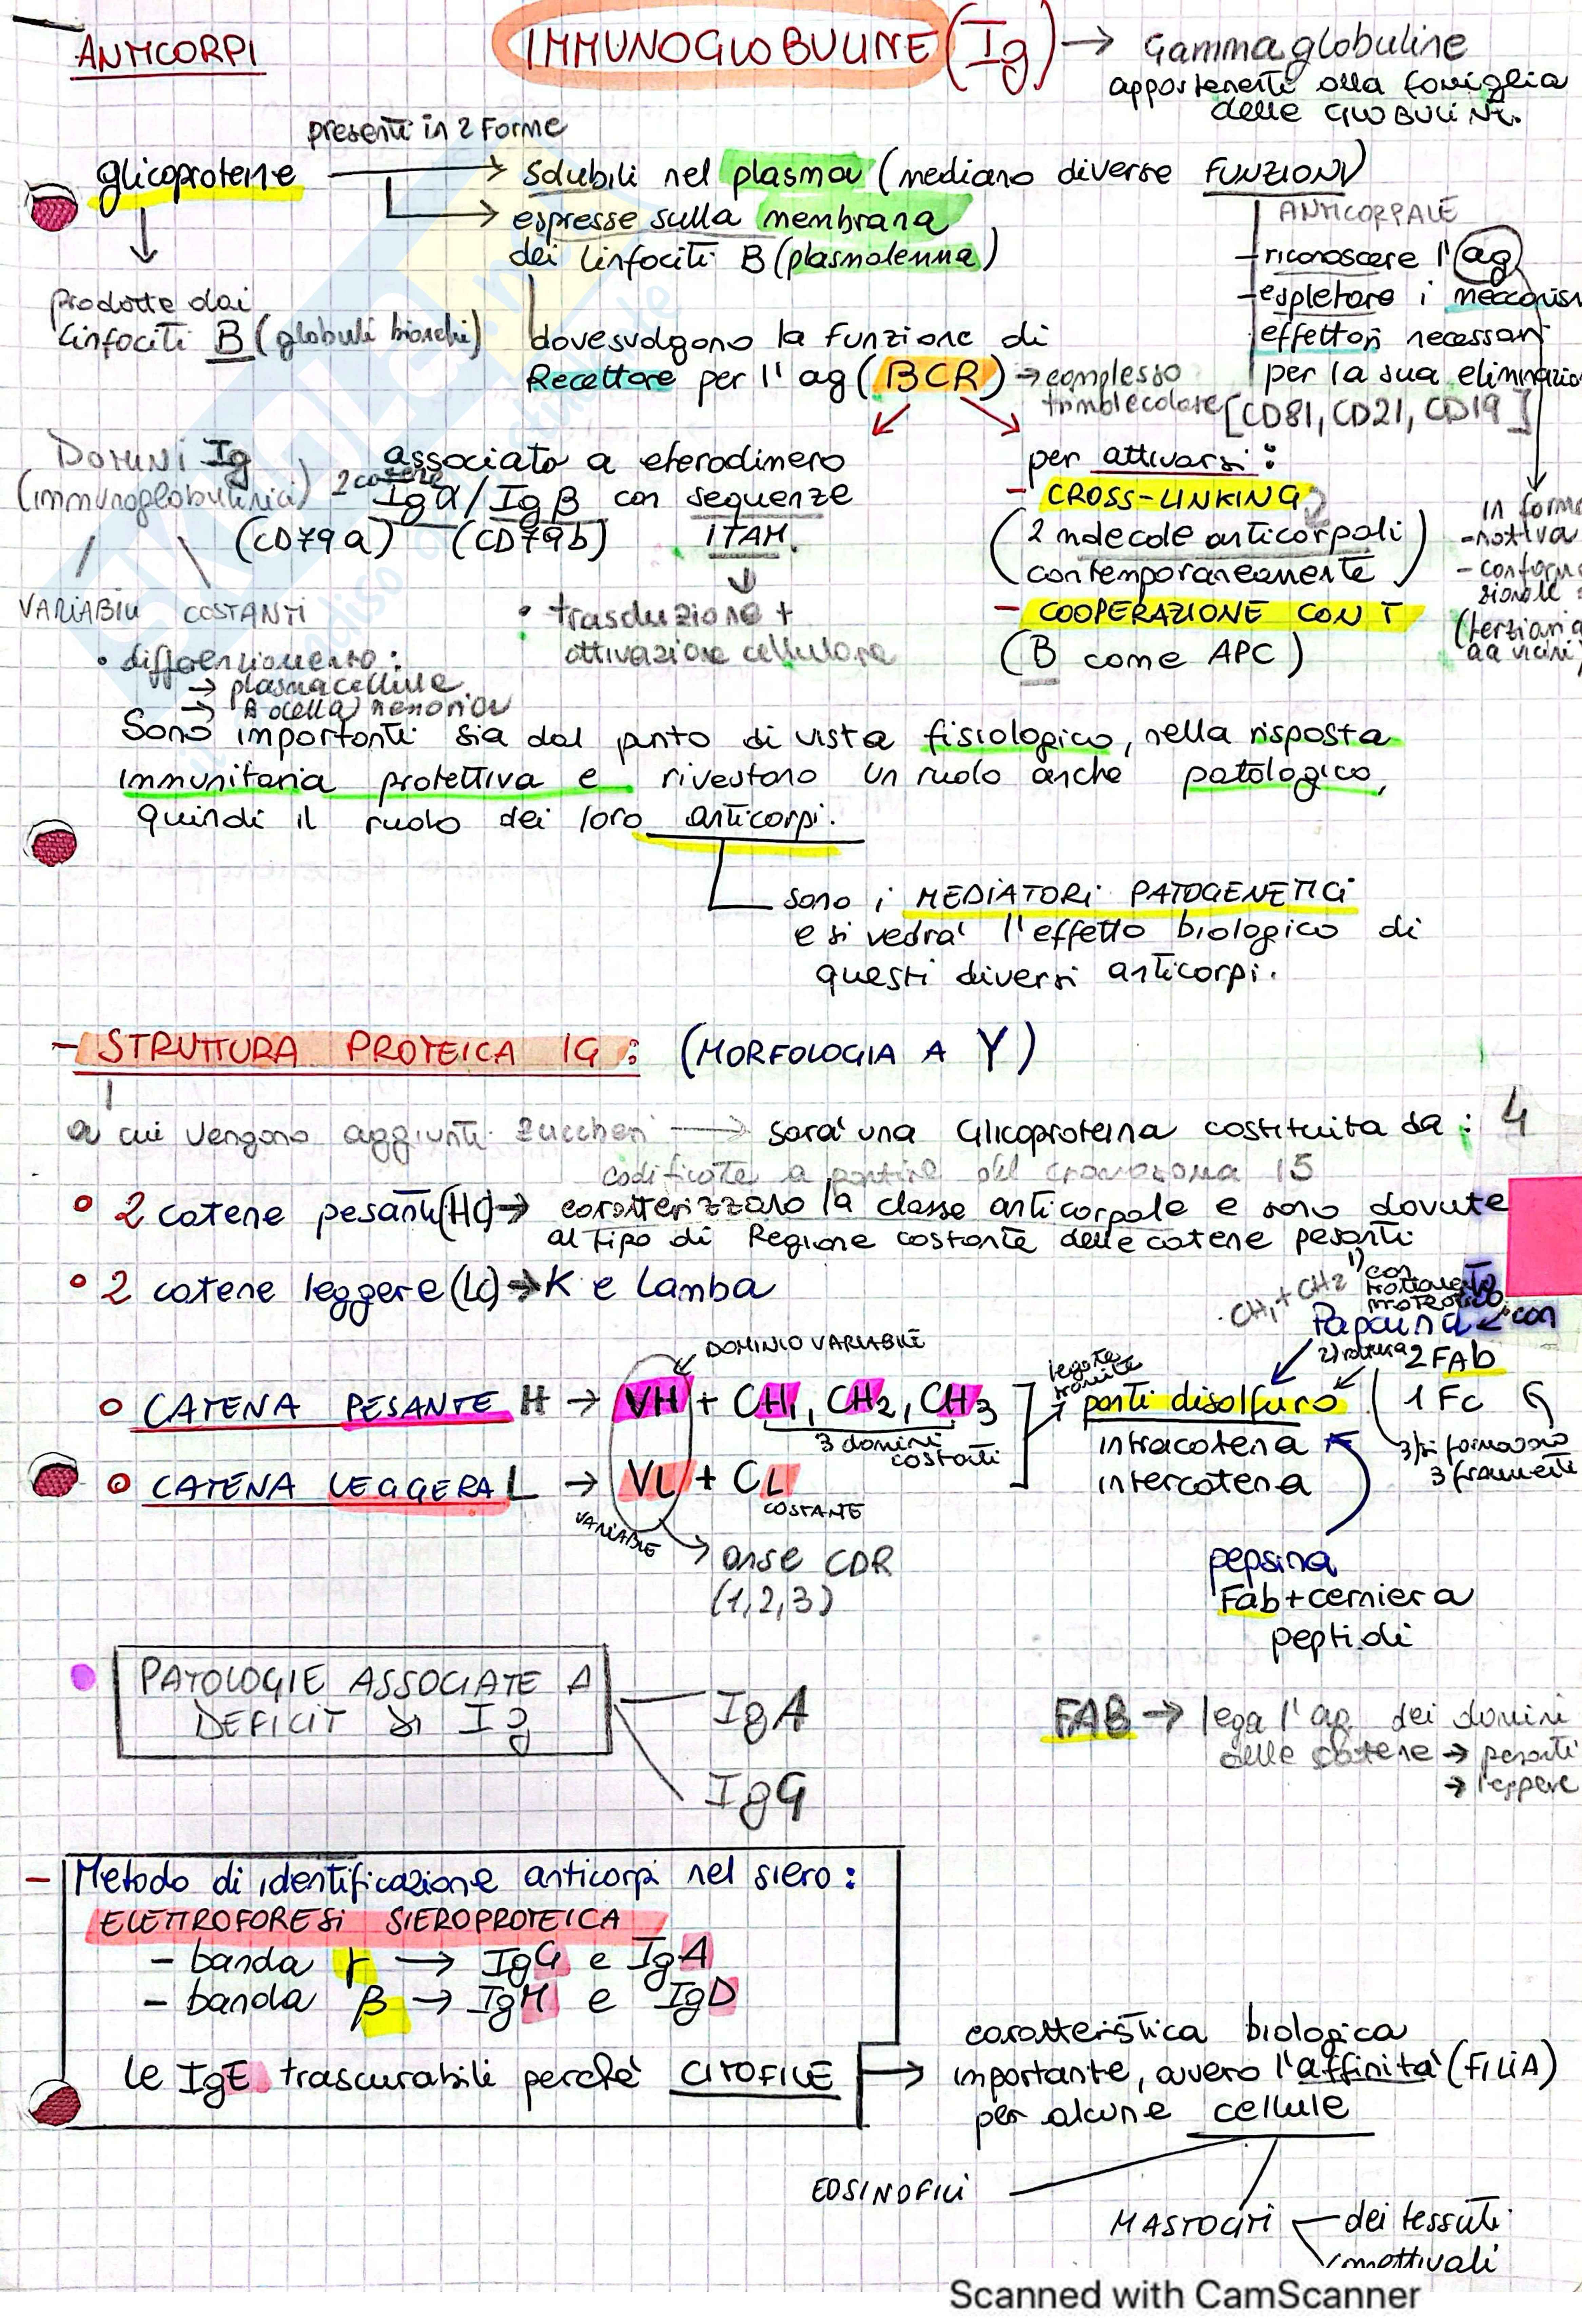 ANTICORPI
IMMUNOGLOBULINE (Ig) → Gamma globuline
appartenenti alla famiglia
delle GLOBULINE.
presenti in 2 forme
glicoproteine → solubili nel plasma (mediano diverse FUNZIONI)
ANTICORPALE
→ espresse sulla membrana
dei linfociti B (plasmalemma)
- riconoscere l'ag
- espletare i meccanis
effettori necessari
per la sua eliminazio
prodotte dai
linfociti B (globuli bianchi)
dove svolgono la funzione di
Recettore per l'ag (BCR) → complesso
trimolecolare [CD81, CD21, CD19]
DOMINI Ig
(immunoglobulinici)
VARIABILI COSTANTI
associato a eterodimero
2 catene Igα/Igβ con sequenze
(CD79a) (CD79b) ITAM.
• trasduzione +
attivazione cellulare
• differenziamento:
→ plasmacellule
→ B della memoria
per attivarsi:
- CROSS-LINKING
(2 molecole anticorpali
contemporaneamente)
- COOPERAZIONE CON T
(B come APC)
in forma
- nativa
- conforma
zionale
(terziaria
aa vicini)
Sono importanti sia dal punto di vista fisiologico, nella risposta
immunitaria protettiva e rivestono un ruolo anche patologico,
quindi il ruolo dei loro anticorpi.
sono i MEDIATORI PATOGENETICI
e si vedrà l'effetto biologico di
questi diversi anticorpi.
- STRUTTURA PROTEICA IG: (MORFOLOGIA A Y)
a cui vengono aggiunti zuccheri → sarà una Glicoproteina costituita da: 4
codificate a partire dal cromosoma 15
• 2 catene pesanti (HC) → caratterizzano la classe anticorpale e sono dovute
al tipo di Regione costante delle catene pesanti
• 2 catene leggere (LC) → K e Lamba
DOMINIO VARIABILE
• CATENA PESANTE H → VH + CH1, CH2, CH3
3 domini
costanti
• CATENA LEGGERA L → VL + CL
COSTANTE
VARIABILE
→ anse CDR
(1,2,3)
legate
tramite
ponti disolfuro
intracatena
intercatena
• CH1 + CH2
1) con
trattamento
proteolitico con
Papaina
2) rottura 2 FAb
1 Fc
3) si formano
3 frammenti
pepsina
Fab + cerniera
peptidi
• PATOLOGIE ASSOCIATE A
DEFICIT DI Ig
IgA
IgG
FAB → lega l'ag dei domini
delle catene → pesanti
→ leggere
- Metodo di identificazione anticorpi nel siero:
ELETTROFORESI SIEROPROTEICA
- banda γ → IgG e IgA
- banda β → IgM e IgD
le IgE trascurabili perché CITOFILE
→ caratteristica biologica
importante, ovvero l'affinità (FILIA)
per alcune cellule
EOSINOFILI
MASTOCITI
dei tessuti
connettivali
Scanned with CamScanner